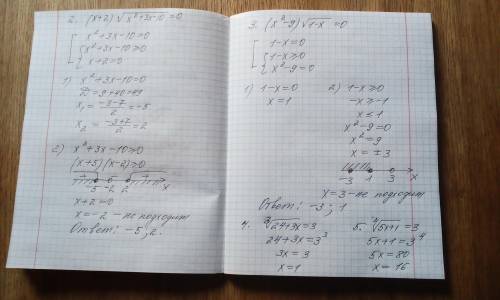 2. (x+2)√x²+3x-10=0
[ x²+3x-10=0
{ x²+3x-10≥0
x+2=0
1) x²+3x-10=0
D=9+40=49
x₁ = (-3-7)/2 = -5
x₂ = (-3+7)/2 = 2
2) x²+3x-10≥0
(x+5)(x-2)≥0
-5 -2 2 x
x+2=0
x=-2 - не подходит
Ответ: -5; 2.
3. (x²-9)√1-x=0
[ 1-x=0
{ 1-x≥0
x²-9=0
1) 1-x=0
x=1
2) 1-x≥0
-x≥-1
x≤1
x²-9=0
x²=9
x=±3
-3 1 3 x
x=3-не подходит
Ответ: -3; 1
4. ³√24+3x=3
24+3x=3³
3x=3
x=1
5. ⁴√5x+1=3
5x+1=3⁴
5x=80
x=16